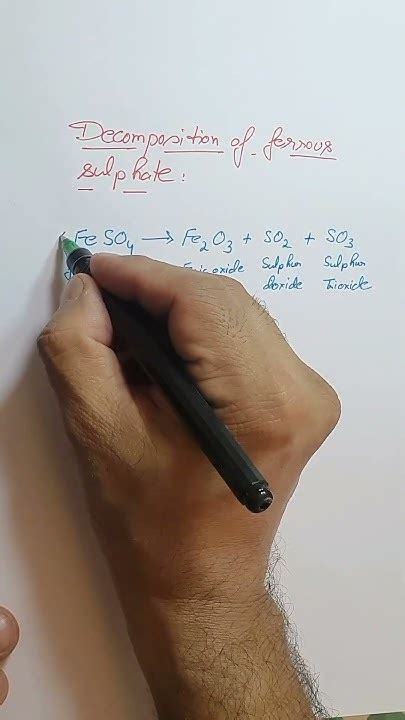 Decomposition of ferrous
sulphate:
FeSO₄ → Fe₂O₃ + SO₂ + SO₃
oxide Sulphur Sulphur
dioxide Trioxide